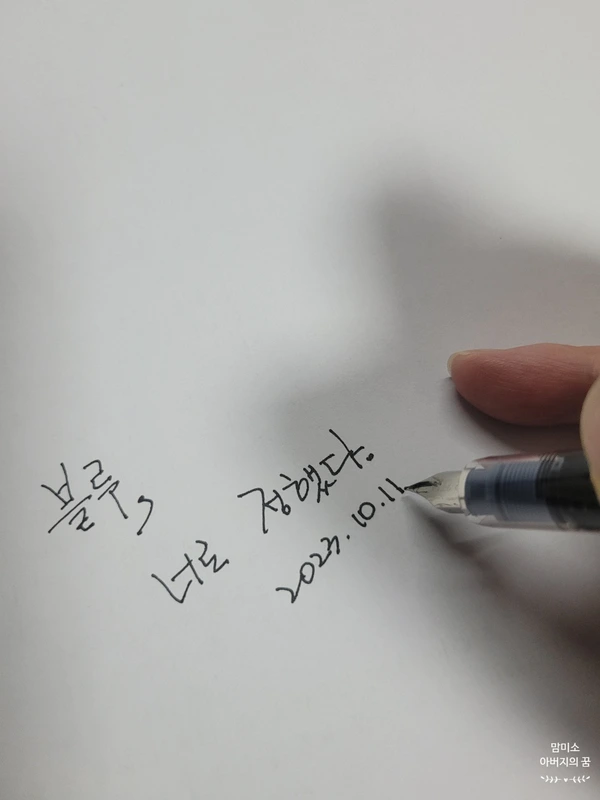 블루,
너로 정했다.
2023. 10. 11
맘미소
아버지의 꿈